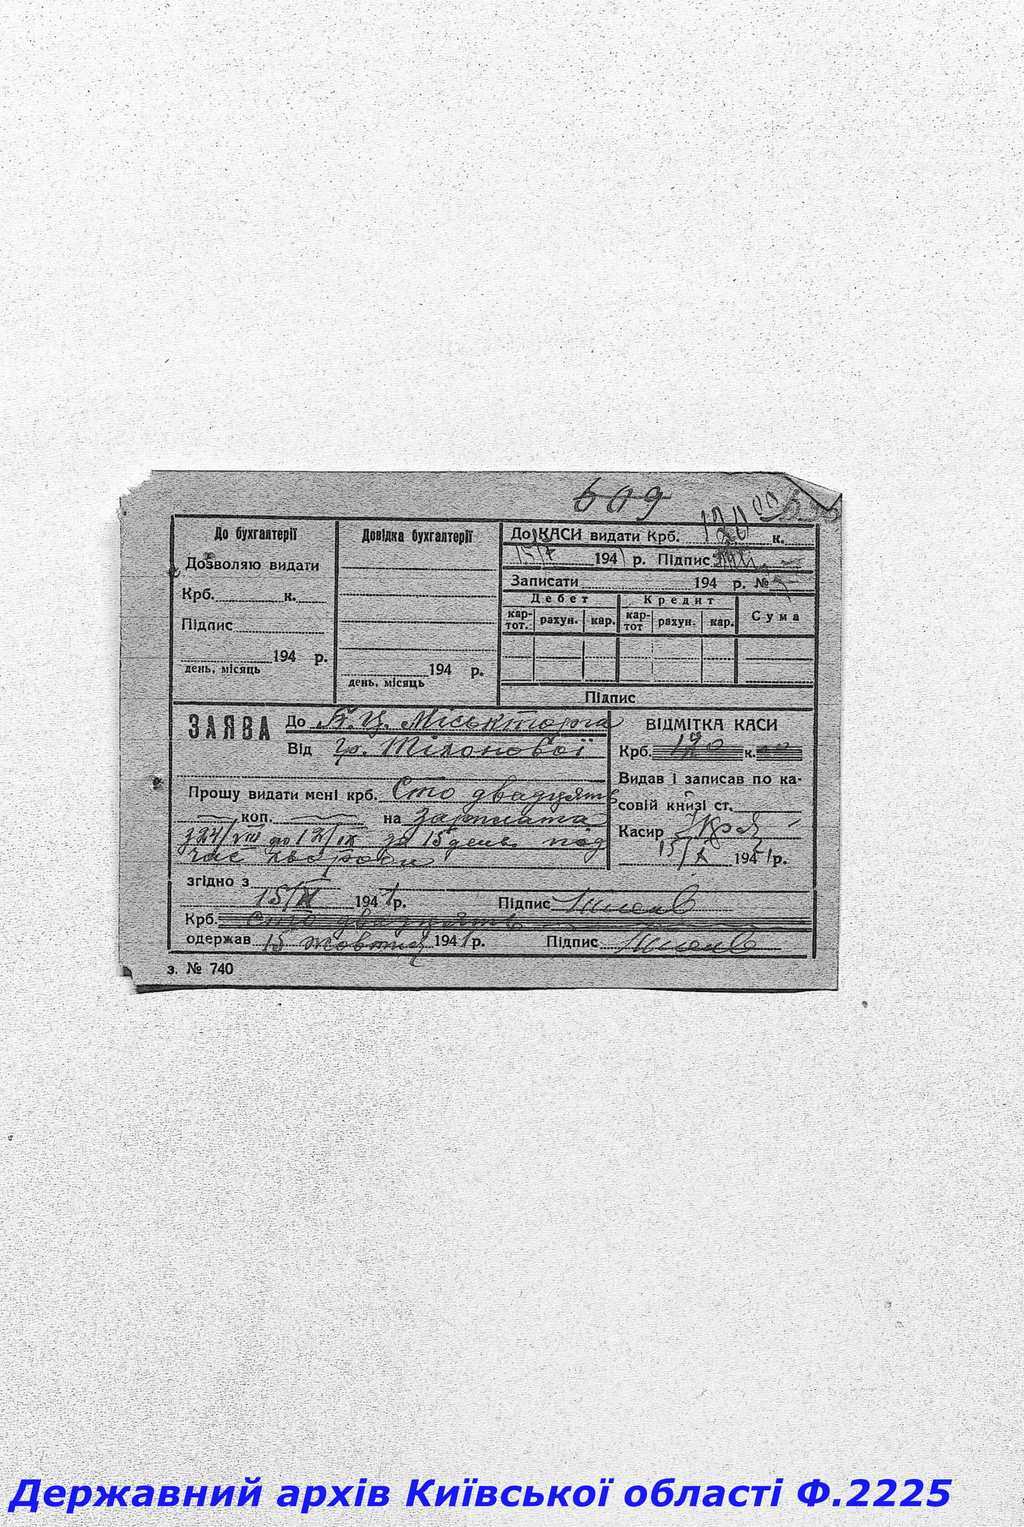 609
До бухгалтерії
Дозволяю видати
Крб. к.
Підпис
194 р.
день, місяць
Довідка бухгалтерії
194 р.
день, місяць
До КАСИ видати Крб. 120 00 к.
15/X 1941 р. Підпис
Записати 194 р. №
Дебет Кредит Сума
кар-тот. рахун. кар. кар-тот рахун. кар.
Підпис
ЗАЯВА До Б.Ц. Міськторга
Від гр. Тіхонової
Прошу видати мені крб. Сто двадцять
коп. на Зарплата
з 24/VIII до 12/IX за 15 день під
час хвороби
ВІДМІТКА КАСИ
Крб. 120 к. 00
Видав і записав по ка-
совій книзі ст.
Касир
15/X 1941 р.
згідно з
15/X 1941 р. Підпис
Крб. сто двадцять
одержав 15 жовтня 1941 р. Підпис
з. № 740
Державний архів Київської області Ф.2225